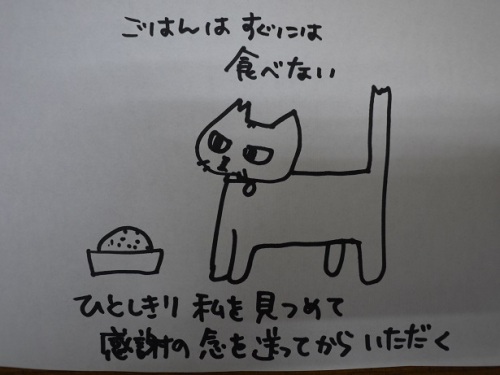 ごはんは すぐには
食べない
ひとしきり 私を 見つめて
感謝の 念を 送ってから いただく